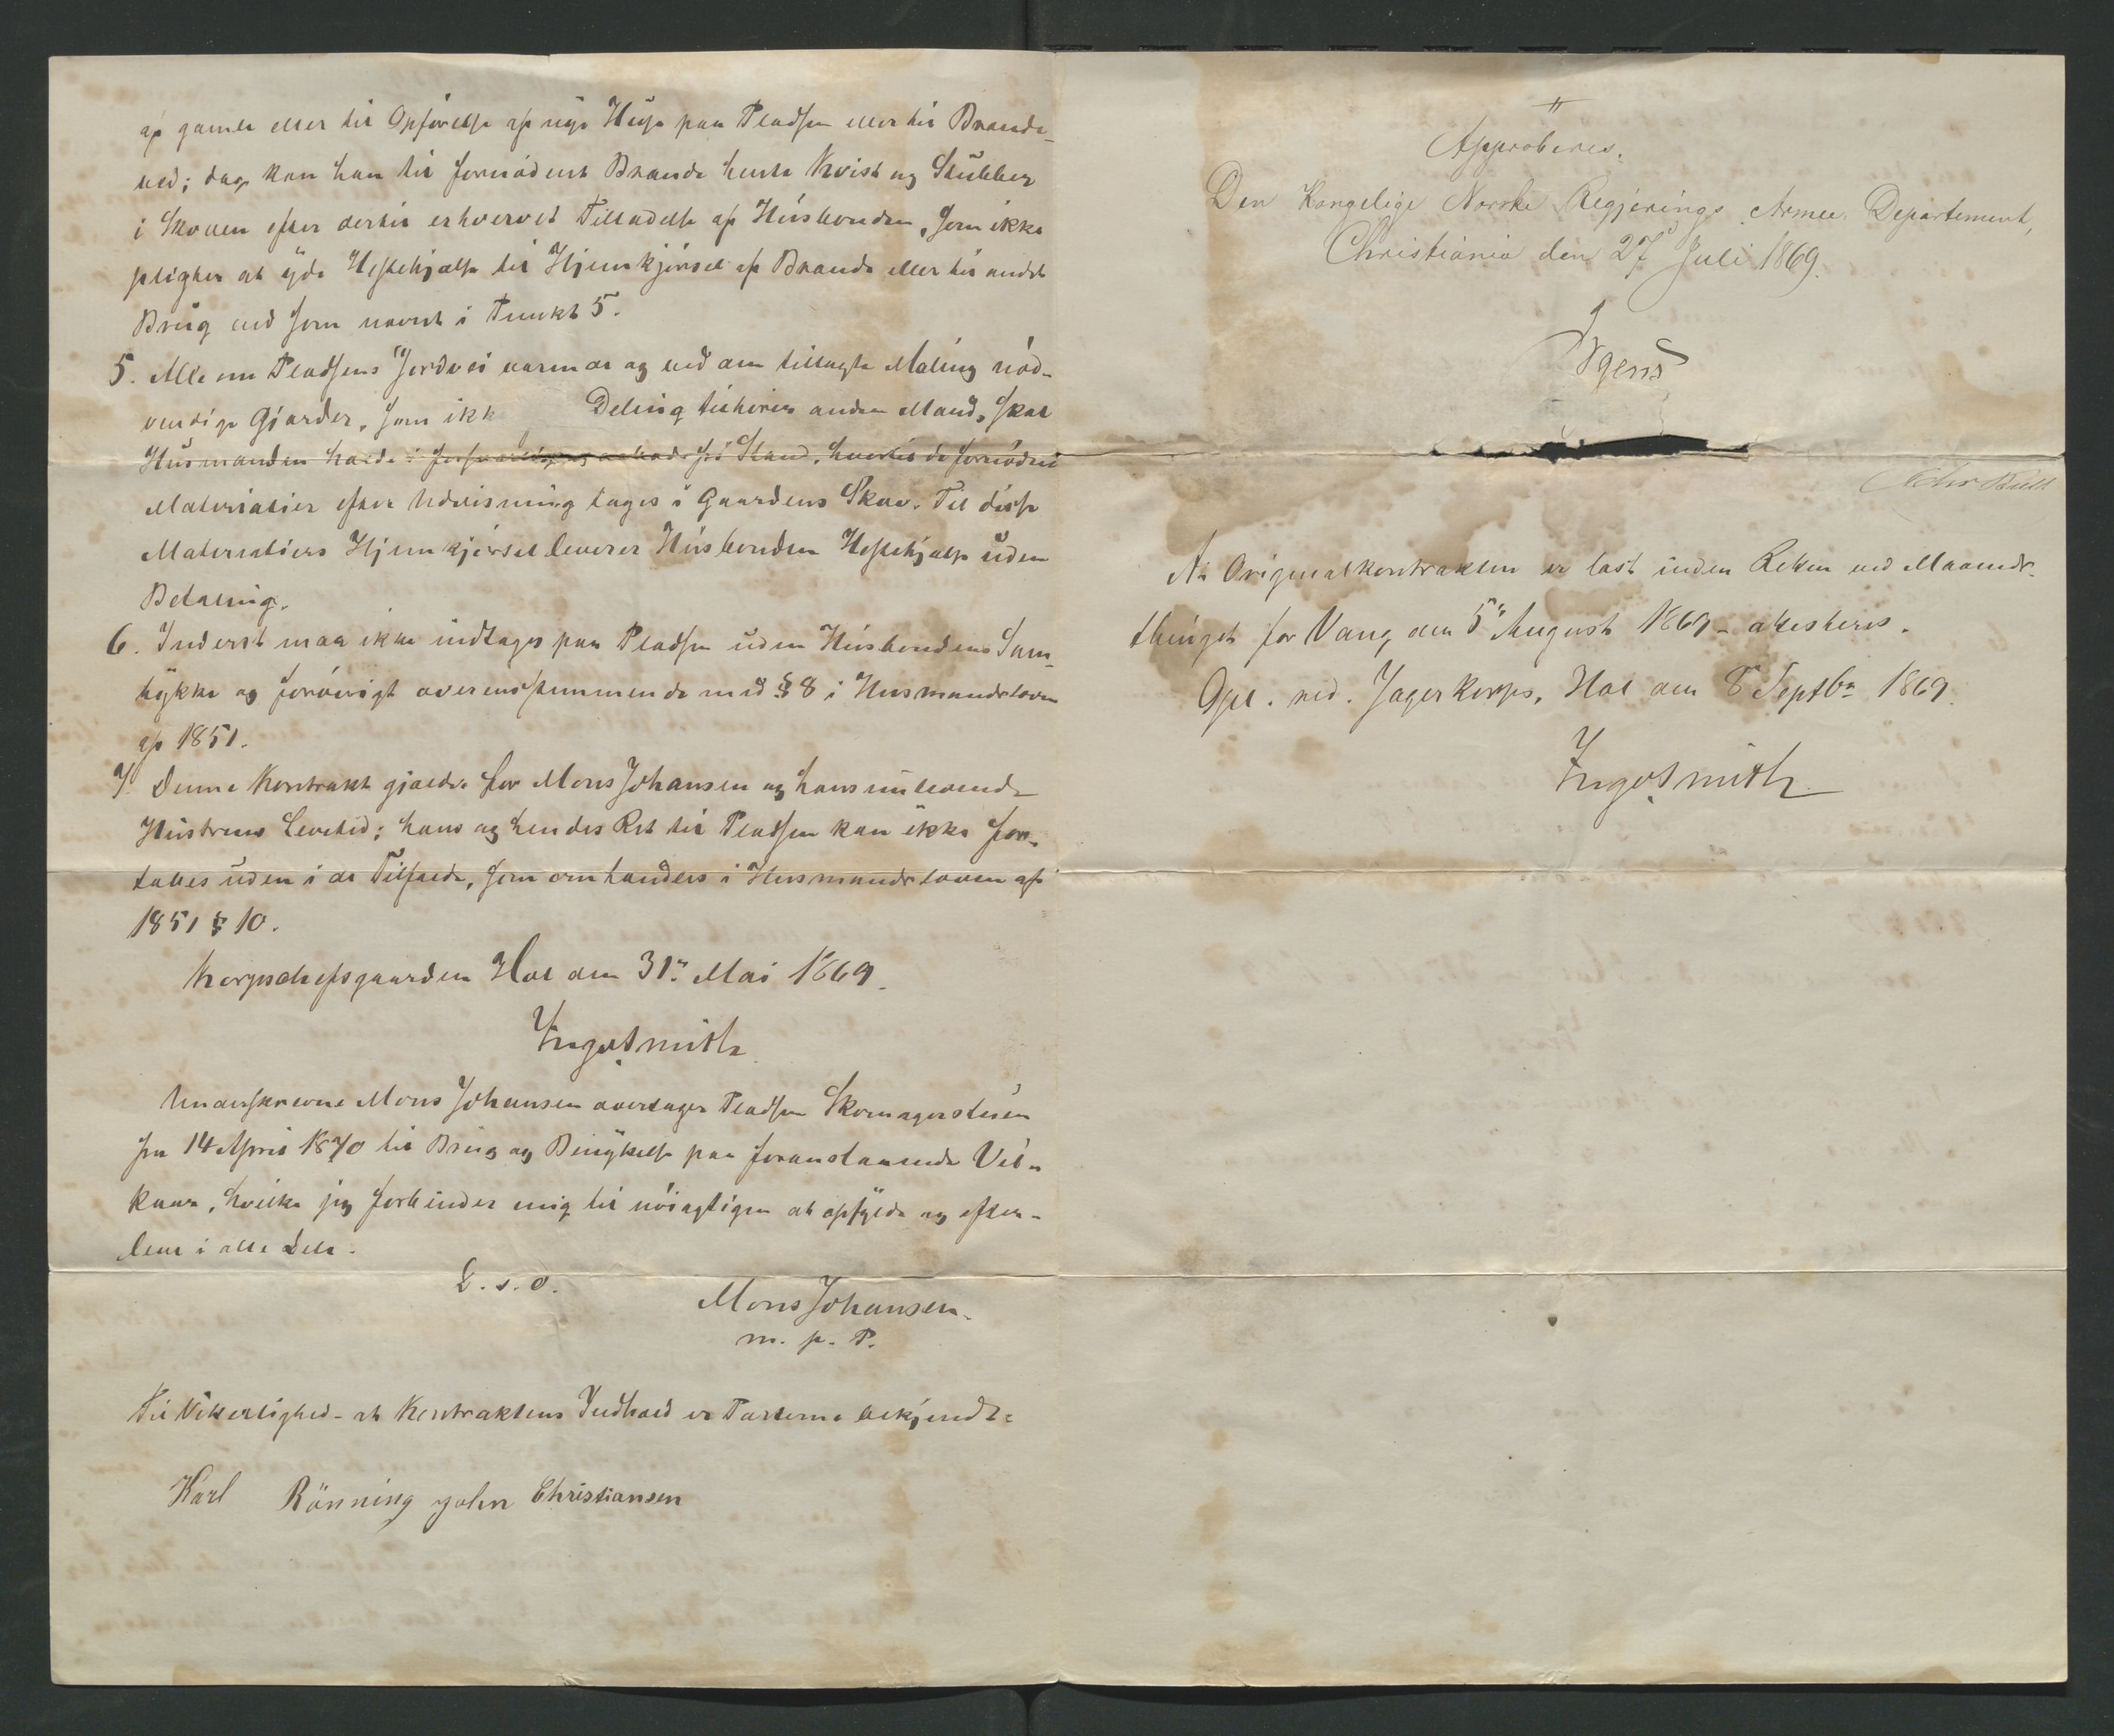 af gamle eller til Opförelse af nye Huse paa Pladsen eller til Brænde-
ved; dog kan han til fornödent Brænde hente Kvist og Stubber
i Skoven efter dertil erhvervet Tilladelse af Husbonden, som ikke
pligter at yde Hestehjælp til Hjemkjörsel af Brænde eller til andet
Brug end som nævnt i Punkt 5.
5. Alle om Pladsens Jordvei værende og ved den tillagte Maling nöd-
vendige Gjærder, som ikk Deling tilhörer anden Mand, skal
Husmanden holde i forsvarlig Stand, hvortil de fornödne
Materialier efter Udvisning tages i Gaardens Skov. Til disse
Materialiers Hjemkjörsel leverer Husbonden Hestehjælp uden
Betaling.
6. Inderst maa ikke indtages paa Pladsen uden Husbondens Sam-
tykke og forövrigt overensstemmende med § 8 i Husmandsloven
af 1851.
7. Denne Kontrakt gjælder for Mons Johansen og hans nulevende
Hustrues Levetid; hans og hendes Ret til Pladsen kan ikke for-
tabes uden i de Tilfælde, som omhandles i Husmandsloven af
1851 § 10.
Korpschefsgaarden Hol den 31te Mai 1869.
Underskrevne Mons Johansen overtager Pladsen Skomagerstuen
fra 14 April 1870 til Brug og Benyttelse paa foranstaaende Vil-
kaar, hvilke jeg forbinder mig til nöiagtigen at opfylde og efter-
leve i alle Dele.
D. s. o.
Mons Johansen.
m. p. P.
Til Vitterlighed - at Kontraktens Indhold er Parterne bekjendt:
Karl Rönning John Christiansen
Approberes.
Den Kongelige Norske Regjerings Armee Departement,
Christiania den 27 Juli 1869.
At Originalkontrakten er læst inden Retten ved Maaneds-
thinget for Vang den 5te August 1869 - attesteres.
Opl. rid. Jægerkorps, Hol den 8 Septbr 1869.